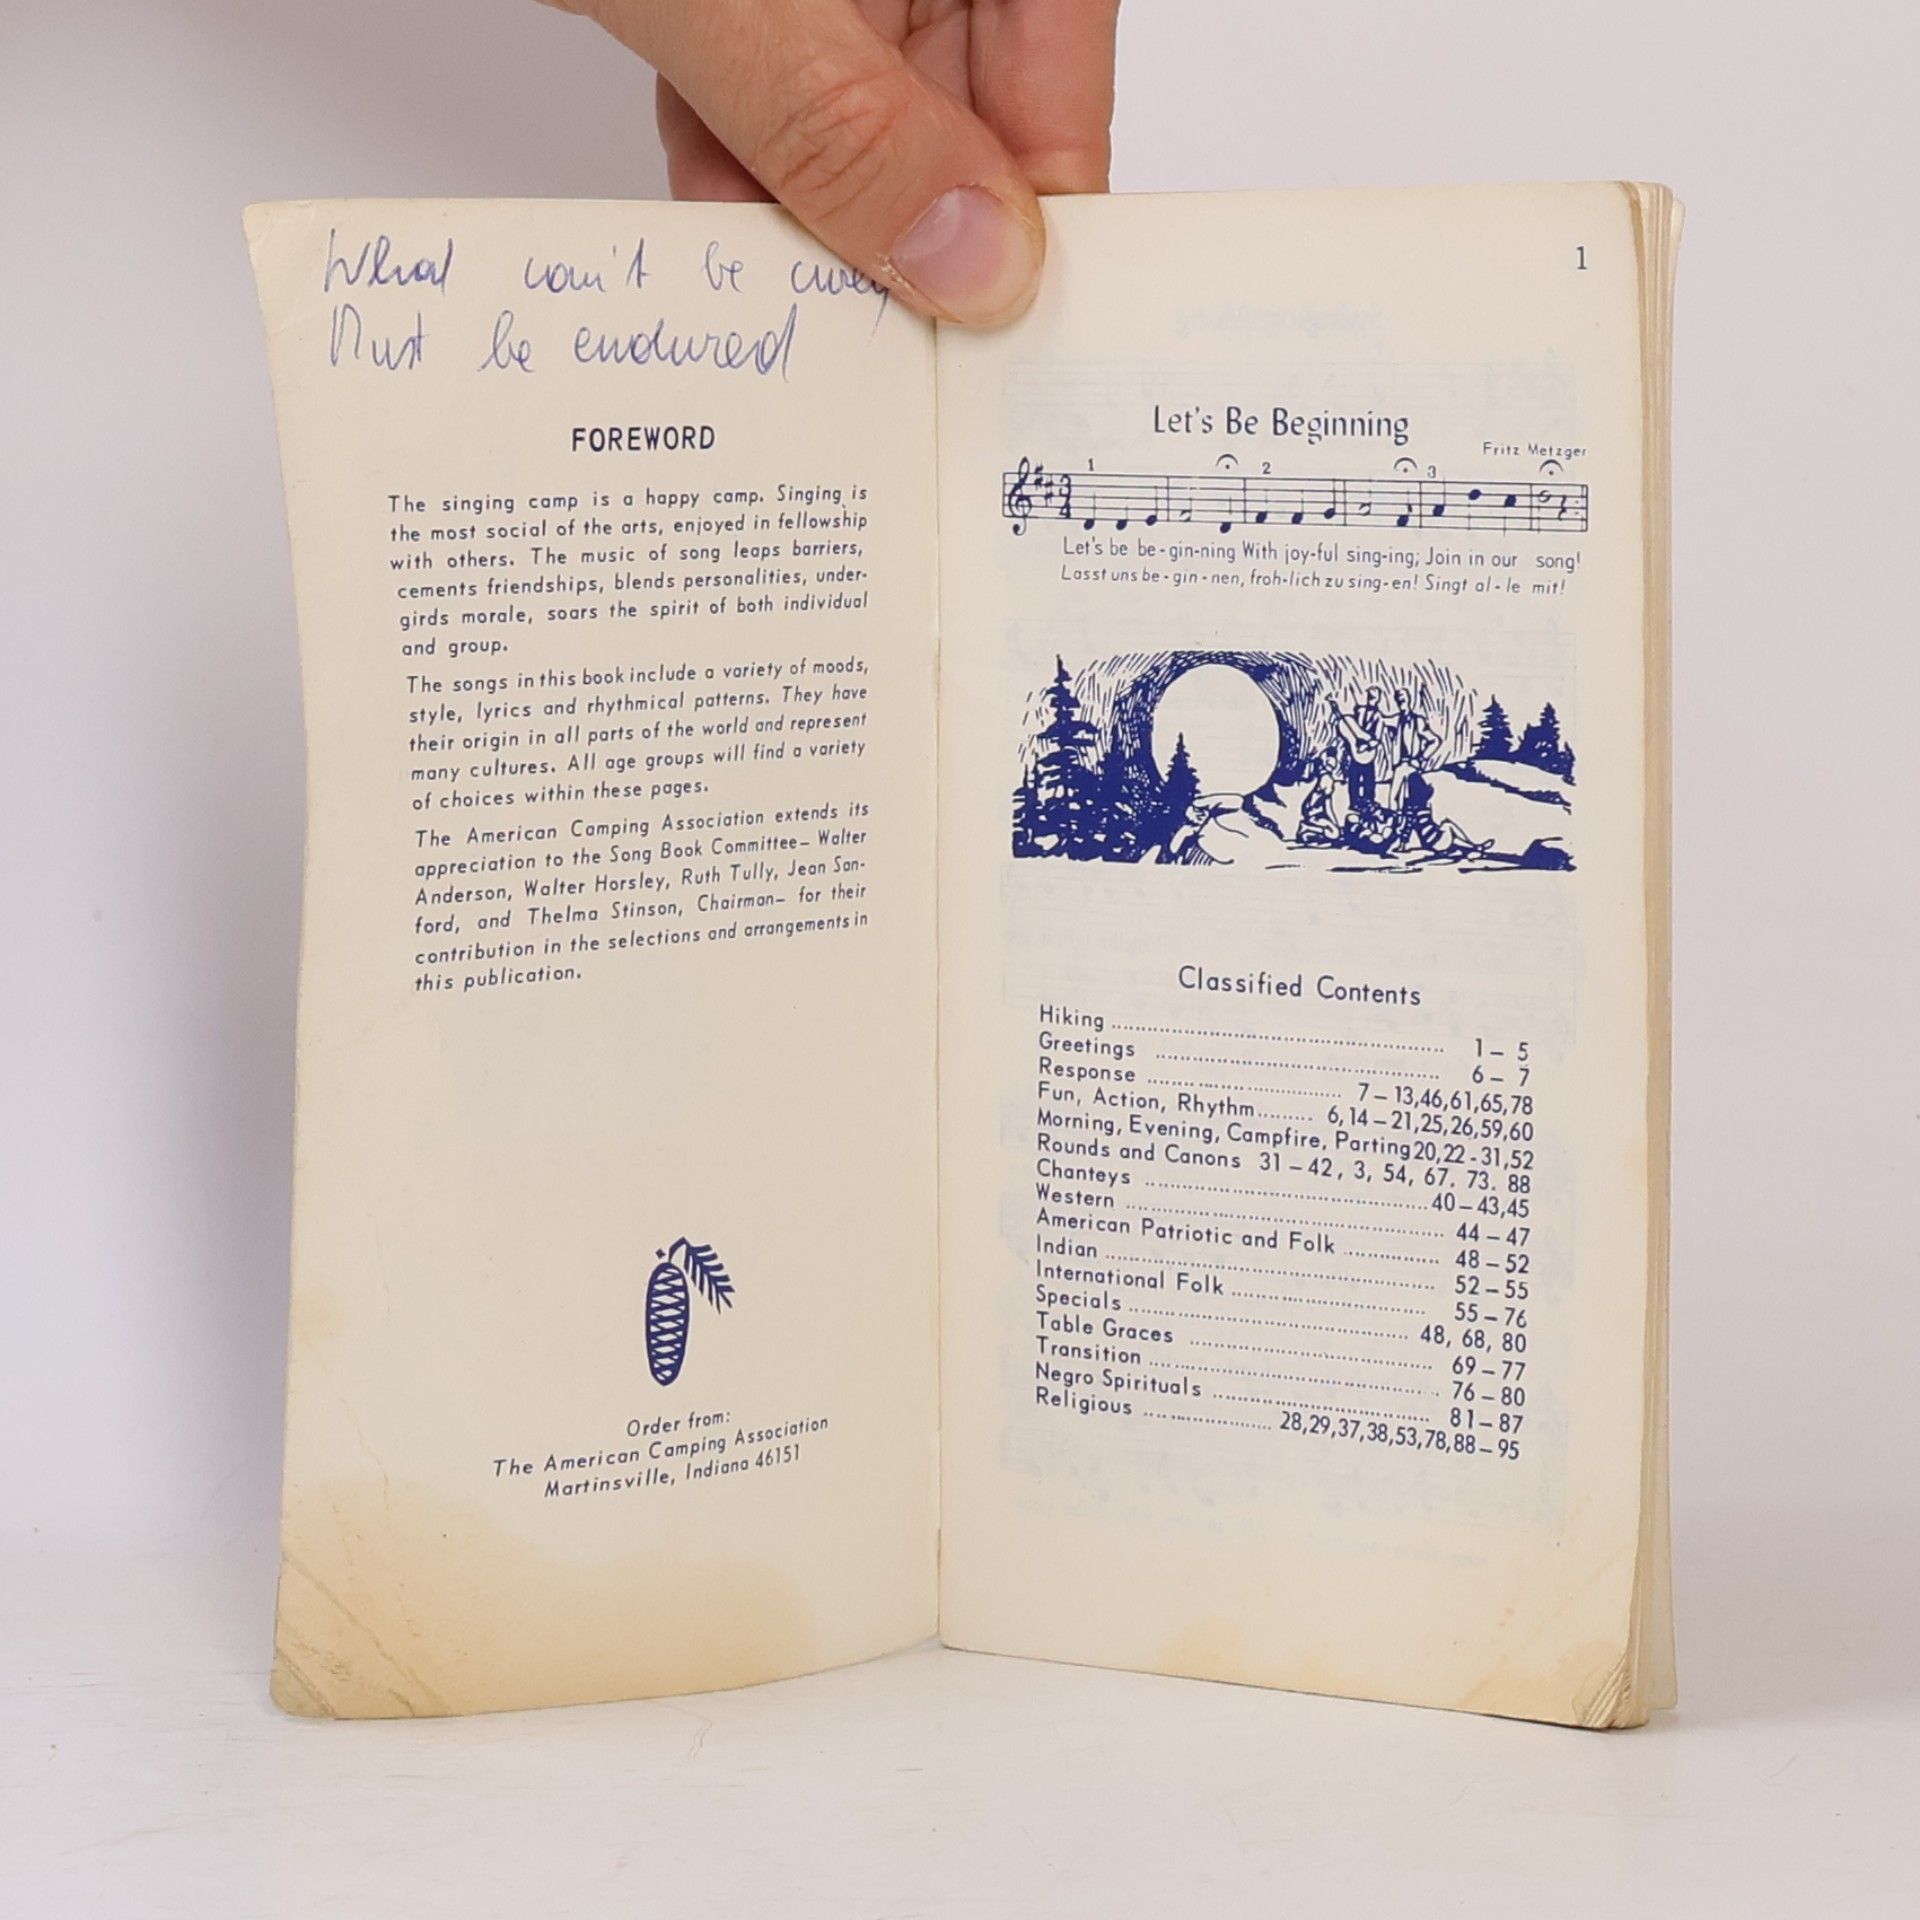 What can't be
Must be endured
FOREWORD
The singing camp is a happy camp. Singing is
the most social of the arts, enjoyed in fellowship
with others. The music of song leaps barriers,
cements friendships, blends personalities, under-
girds morale, soars the spirit of both individual
and group.
The songs in this book include a variety of moods,
style, lyrics and rhythmical patterns. They have
their origin in all parts of the world and represent
many cultures. All age groups will find a variety
of choices within these pages.
The American Camping Association extends its
appreciation to the Song Book Committee– Walter
Anderson, Walter Horsley, Ruth Tully, Jean San-
ford, and Thelma Stinson, Chairman– for their
contribution in the selections and arrangements in
this publication.
Order from:
The American Camping Association
Martinsville, Indiana 46151
1
Let's Be Beginning
Fritz Metzger
1 2 3
3
4
Let's be be-gin-ning With joy-ful sing-ing; Join in our song!
Lasst uns be-gin-nen, froh-lich zu sing-en! Singt al-le mit!
Classified Contents
Hiking ........ 1 – 5
Greetings ........ 6 – 7
Response ........ 7 – 13,46,61,65,78
Fun, Action, Rhythm........ 6,14 – 21,25,26,59,60
Morning, Evening, Campfire, Parting 20,22 - 31,52
Rounds and Canons 31 – 42, 3, 54, 67. 73. 88
Chanteys ........ 40 – 43,45
Western ........ 44 – 47
American Patriotic and Folk ........ 48 – 52
Indian ........ 52 – 55
International Folk ........ 55 – 76
Specials ........ 48, 68, 80
Table Graces ........ 69 – 77
Transition ........ 76 – 80
Negro Spirituals ........ 81 – 87
Religious ........ 28,29,37,38,53,78,88 – 95